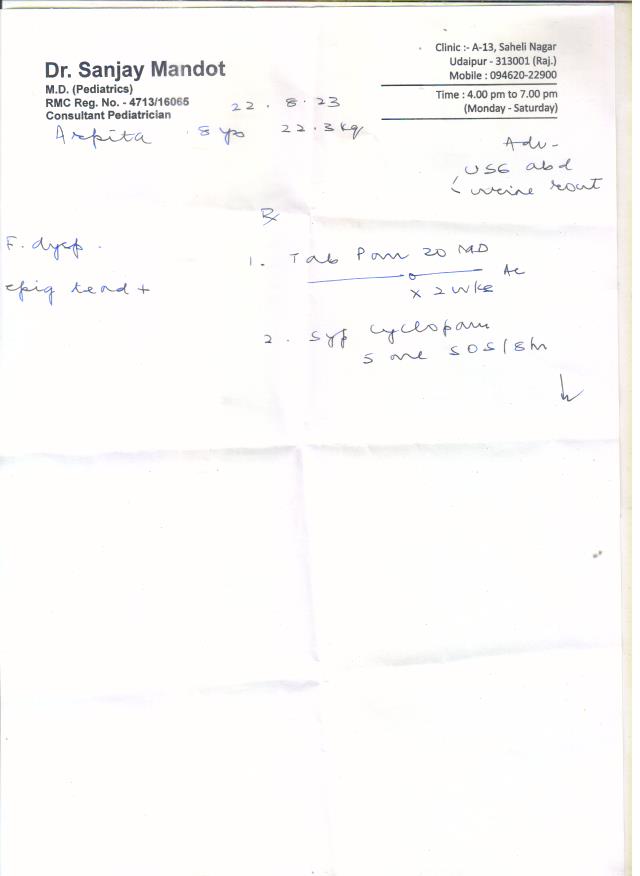 Dr. Sanjay Mandot
M.D. (Pediatrics)
RMC Reg. No. - 4713/16065
Consultant Pediatrician
Clinic :- A-13, Saheli Nagar
Udaipur - 313001 (Raj.)
Mobile : 094620-22900
Time : 4.00 pm to 7.00 pm
(Monday - Saturday)
22 . 8 . 23
Arpita 8 yo 22.3kg
Adv -
USG abd
urine rout
Rx
F. dysp .
epig tend +
1. Tab Pan 20 MD
AC
x 2 wks
2. Syp cyclopam
5 ml SOS/8h